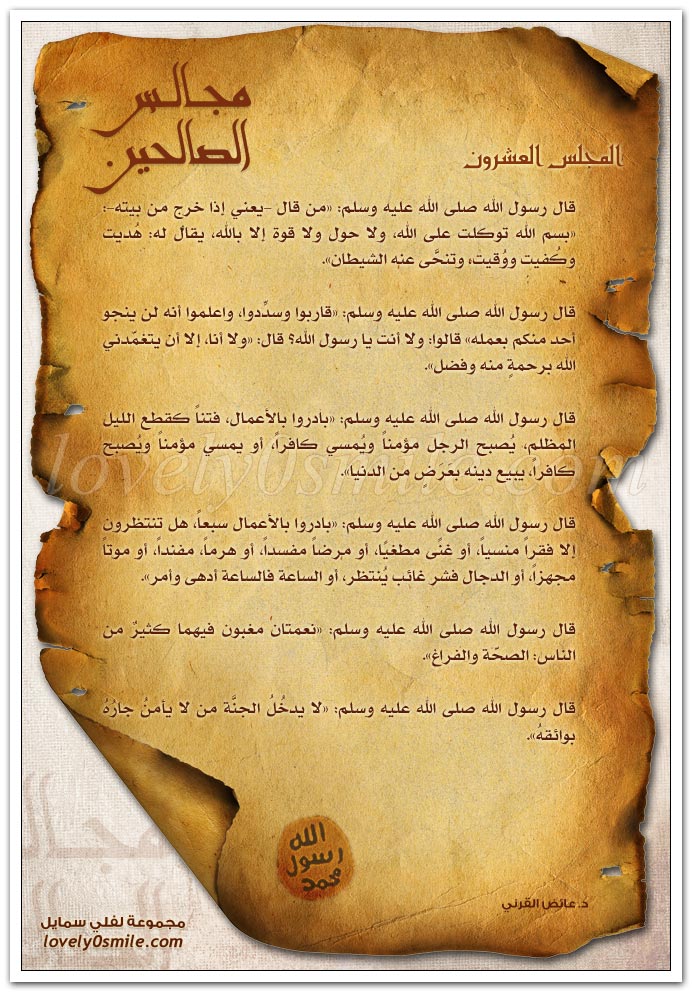 مجالس
الصالحين
المجلس العشرون
قال رسول الله صلى الله عليه وسلم: «من قال -يعني إذا خرج من بيته-:
«بسم الله توكلت على الله، ولا حول ولا قوة إلا بالله، يقال له: هُديت
وكُفيت ووُقيت، وتنحَّى عنه الشيطان».
قال رسول الله صلى الله عليه وسلم: «قاربوا وسدِّدوا، واعلموا أنه لن ينجو
أحد منكم بعمله» قالوا: ولا أنت يا رسول الله؟ قال: «ولا أنا، إلا أن يتغمّدني
الله برحمةٍ منه وفضل».
قال رسول الله صلى الله عليه وسلم: «بادروا بالأعمال، فتناً كقطع الليل
المظلم، يُصبح الرجل مؤمناً ويُمسي كافراً، أو يمسي مؤمناً ويُصبح
كافراً، يبيع دينه بعَرَضٍ من الدنيا».
قال رسول الله صلى الله عليه وسلم: «بادروا بالأعمال سبعاً، هل تنتظرون
إلا فقراً منسياً، أو غنًى مطغيًا، أو مرضاً مفسداً، أو هرماً، مفنداً، أو موتاً
مجهزاً، أو الدجال فشر غائب يُنتظر، أو الساعة فالساعة أدهى وأمر».
قال رسول الله صلى الله عليه وسلم: «نعمتان مغبون فيهما كثيرٌ من
الناس: الصحّة والفراغ».
قال رسول الله صلى الله عليه وسلم: «لا يدخُلُ الجنَّة من لا يأمنُ جارُهُ
بوائقهُ».
الله
رسول
محمد
د. عائض القرني
مجموعة لفلي سمايل
lovely0smile.com
lovely0smile.com